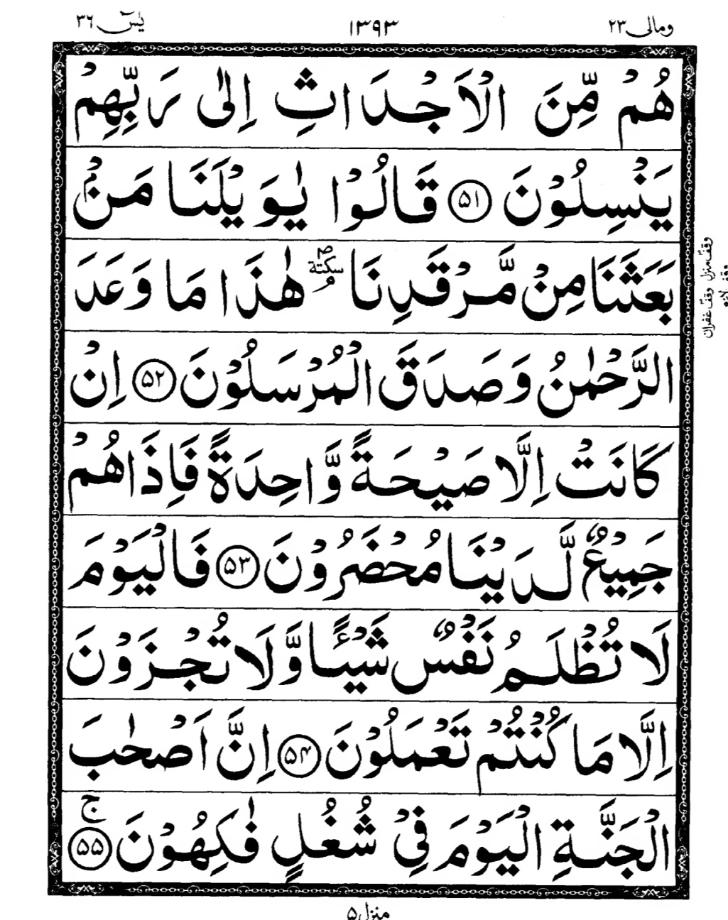 ومالی ٢٣ ١٣٩٣ يٰسٓ ٣٦
هُمۡ مِّنَ الۡاَجۡدَاثِ اِلٰى رَبِّهِمۡ
يَنۡسِلُوۡنَ ۝٥١ قَالُوۡا يٰوَيۡلَنَا مَنۡۢ
بَعَثَنَا مِنۡ مَّرۡقَدِنَا ۘ سكتة هٰذَا مَا وَعَدَ
الرَّحۡمٰنُ وَصَدَقَ الۡمُرۡسَلُوۡنَ ۝٥٢ اِنۡ
كَانَتۡ اِلَّا صَيۡحَةً وَّاحِدَةً فَاِذَا هُمۡ
جَمِيۡعٌ لَّدَيۡنَا مُحۡضَرُوۡنَ ۝٥٣ فَالۡيَوۡمَ
لَا تُظۡلَمُ نَفۡسٌ شَيۡـًٔـا وَّلَا تُجۡزَوۡنَ
اِلَّا مَا كُنۡتُمۡ تَعۡمَلُوۡنَ ۝٥٤ اِنَّ اَصۡحٰبَ
الۡجَنَّةِ الۡيَوۡمَ فِىۡ شُغُلٍ فٰكِهُوۡنَ‌ۚ ۝٥٥
وقف منزل
وقف غفران
وقف لازم
منزل ٥